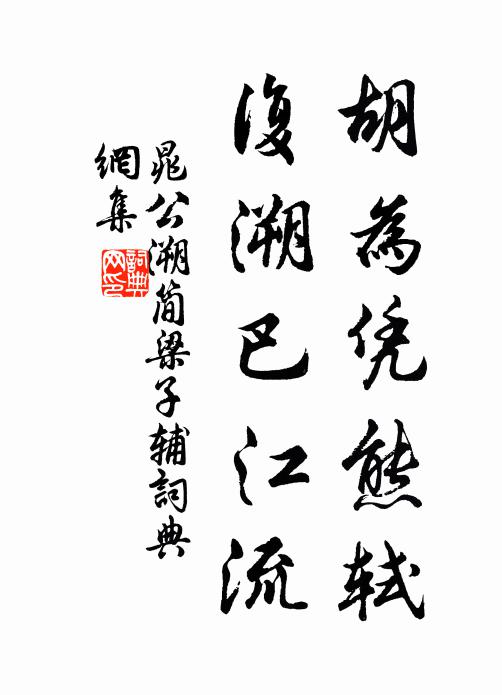 胡為凭熊軾
復溯巴江流
晁公溯简梁子辅詞典
網集
詞典
网印